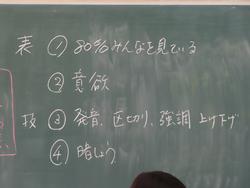 表 ① 80%みんなを見ている
② 意欲
技 ③ 発音、区切り、強調 上げ下げ
④ 暗しょう